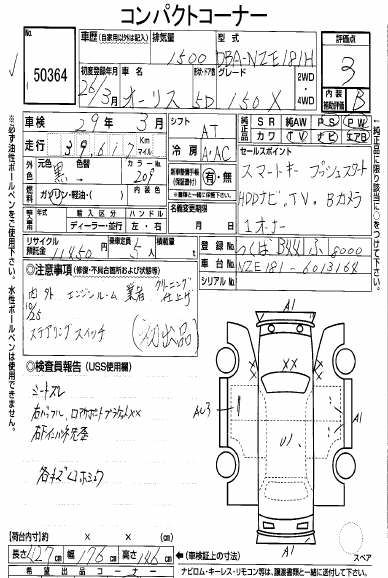 コンパクトコーナー
50364
車歴 (自家用以外は記入)
排気量 1500
型式 DBA-NZE181H
評価点 3
初度登録年月 26/3月
車名 オーリス
形状・ドア数 5D
グレード 150X
2WD
4WD
内装 B
補助評価
車検 29年 3月
シフト AT
純正品 SR 純AW PS PW
カワ TV ナビ エアB
走行 39,617 Km
冷房 A・AC
セールスポイント
スマートキー プッシュスタート
HDDナビ、TV、Bカメラ
1オーナー
外色 元色 黒 色替
カラーNo. 209
新車整備手帳(保証書付) 有・無
※書類と一緒に送付
燃料 ガソリン・軽油・( )
名義変更期限 月 日
輸入車 年 輸入区分 ハンドル
ディーラー・並行 左・右
リサイクル預託金 11,450円
乗車定員 5人
積載量 t
登録No. つくば 8000
車台No. NZE181-6013164
シリアルNo.
◎注意事項 (修復・不具合箇所及び状態等)
内外 エンジンルーム 業者 クリーニング仕上げ
10/25
ステアリングスイッチ
(初出品)
◎検査員報告 (USS使用欄)
シートスレ
A1
XX
AU3
U1
A1
A1
スペア
【荷台内寸】 × × (cm)
長さ 427cm 幅 176cm 高さ 146cm
◀(車検証上の寸法)
希望出品コーナー
ナビロム・キーレス・リモコン等は、譲渡書類と一緒に送付して下さい。
※必ず油性ボールペンをご使用下さい。水性ボールペンは使用できません。
※純正品に限り該当に○をつけて下さい。